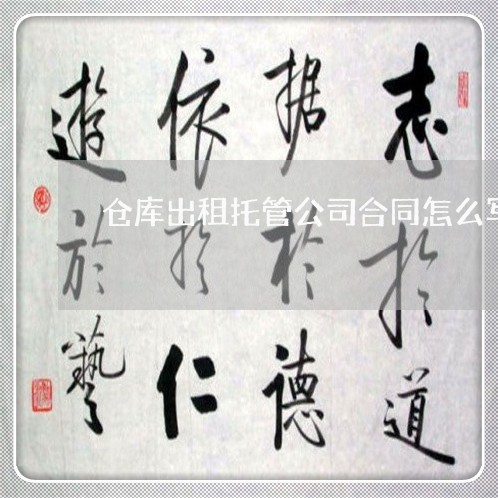 志於道
据於德
依於仁
遊於藝
仓库出租托管公司合同怎么写